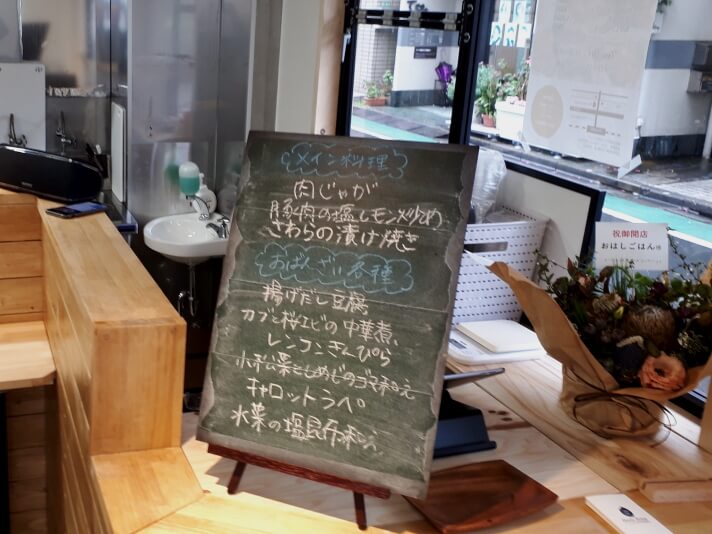 メイン料理
肉じゃが
豚肉の塩レモン炒め
さわらの漬け焼き
おばんざい各種
揚げだし豆腐
カブと桜エビの中華煮
レンコンきんぴら
小松菜としめじのゴマ和え
キャロットラペ
水菜の塩昆布和え
祝御開店
おはしごはん様